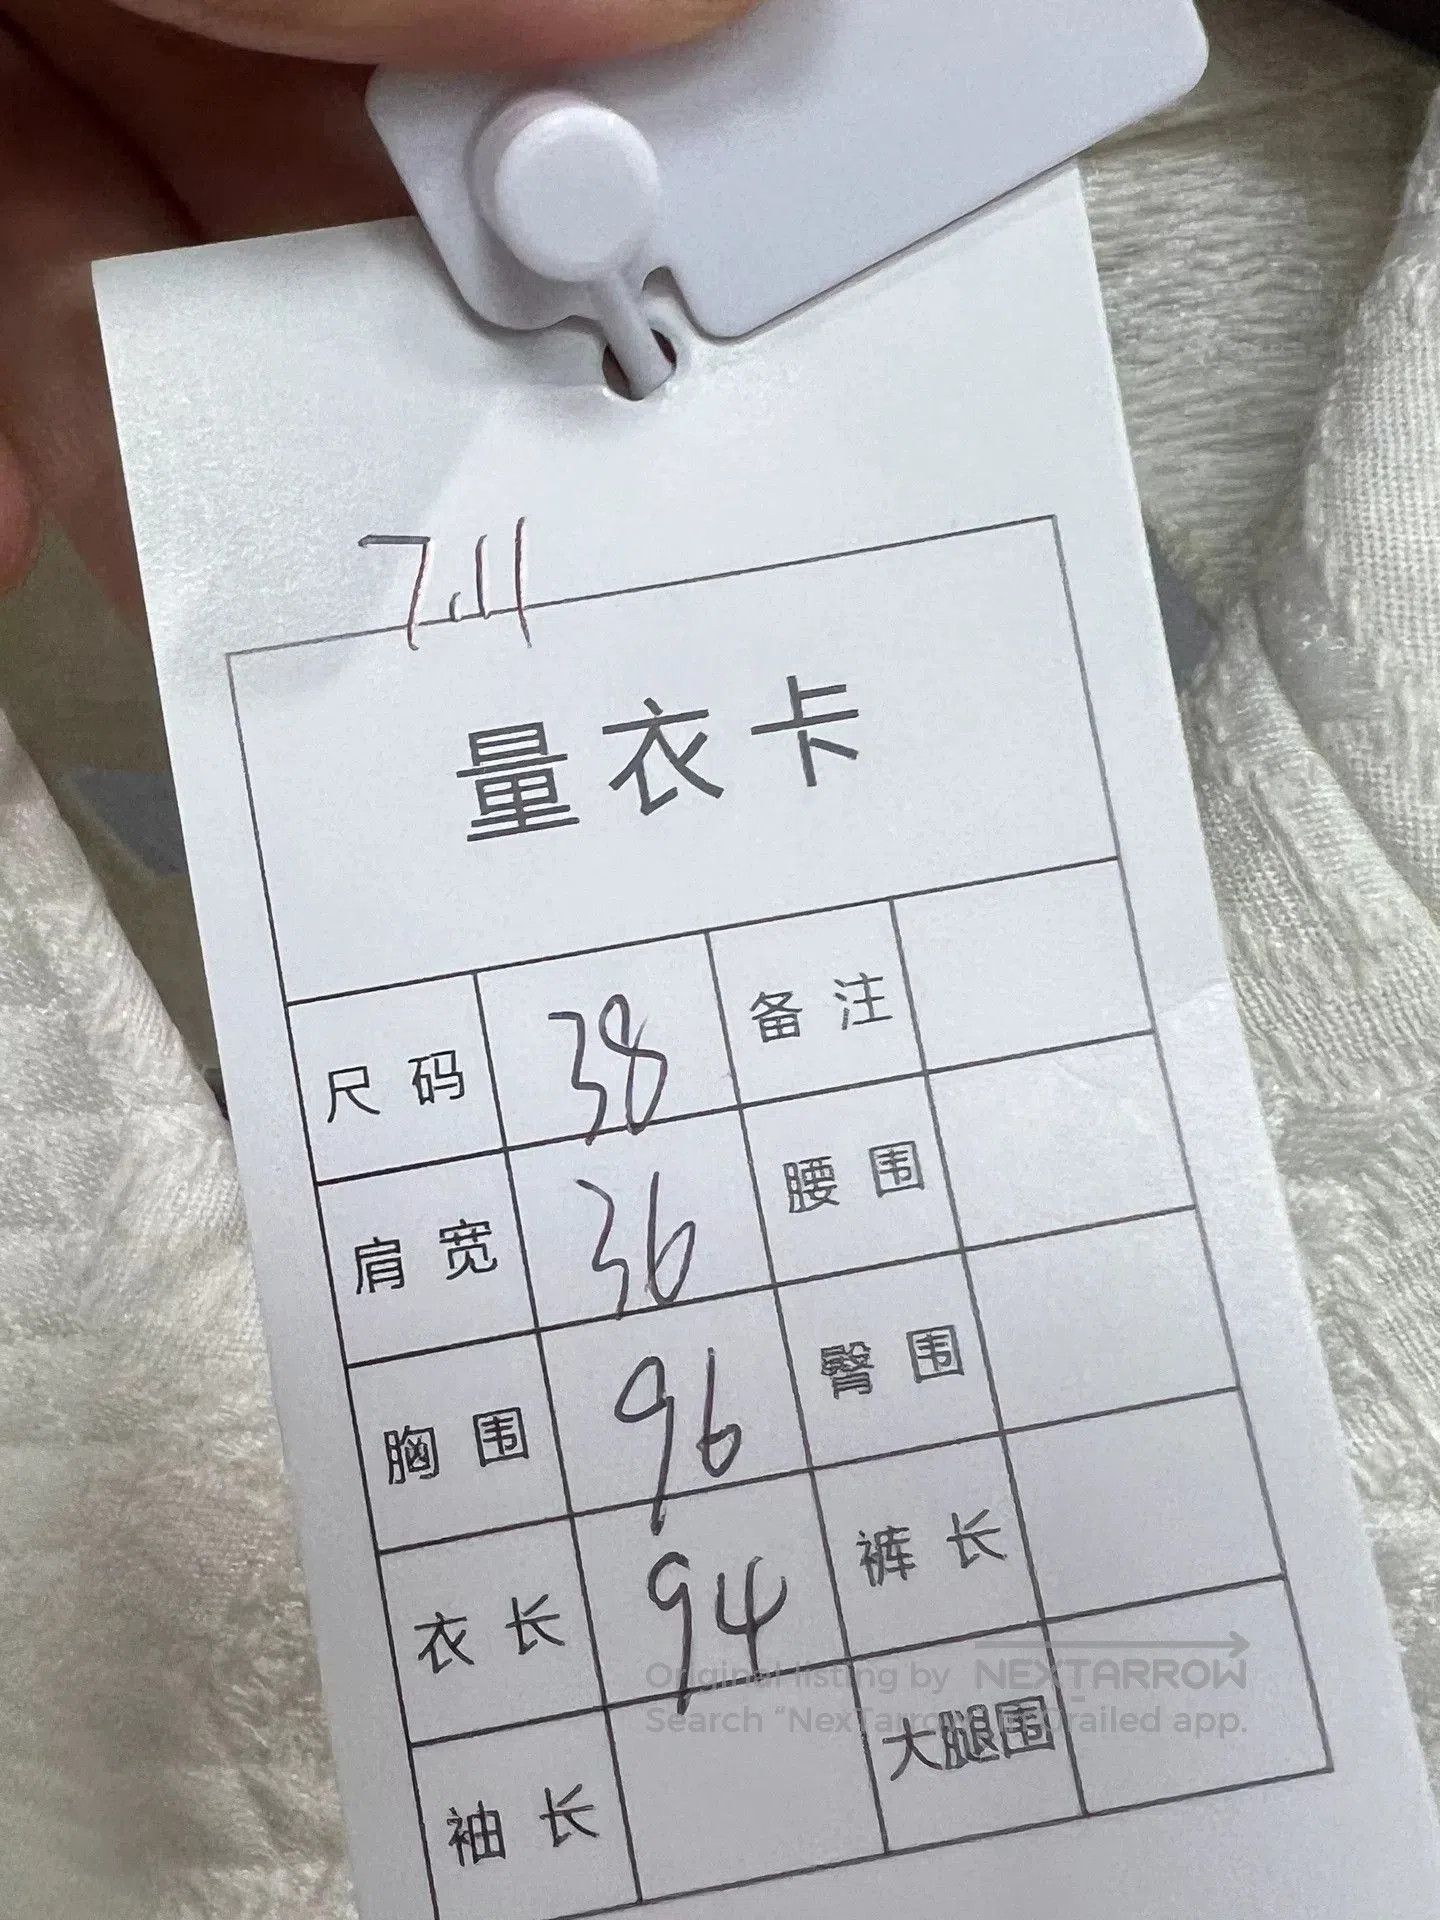 7.11
量衣卡
尺码 38 备注
肩宽 36 腰围
胸围 96 臀围
衣长 94 裤长
Original listing by NEXTARROW
Search "NexTarrow" on Grailed app.
袖长 大腿围